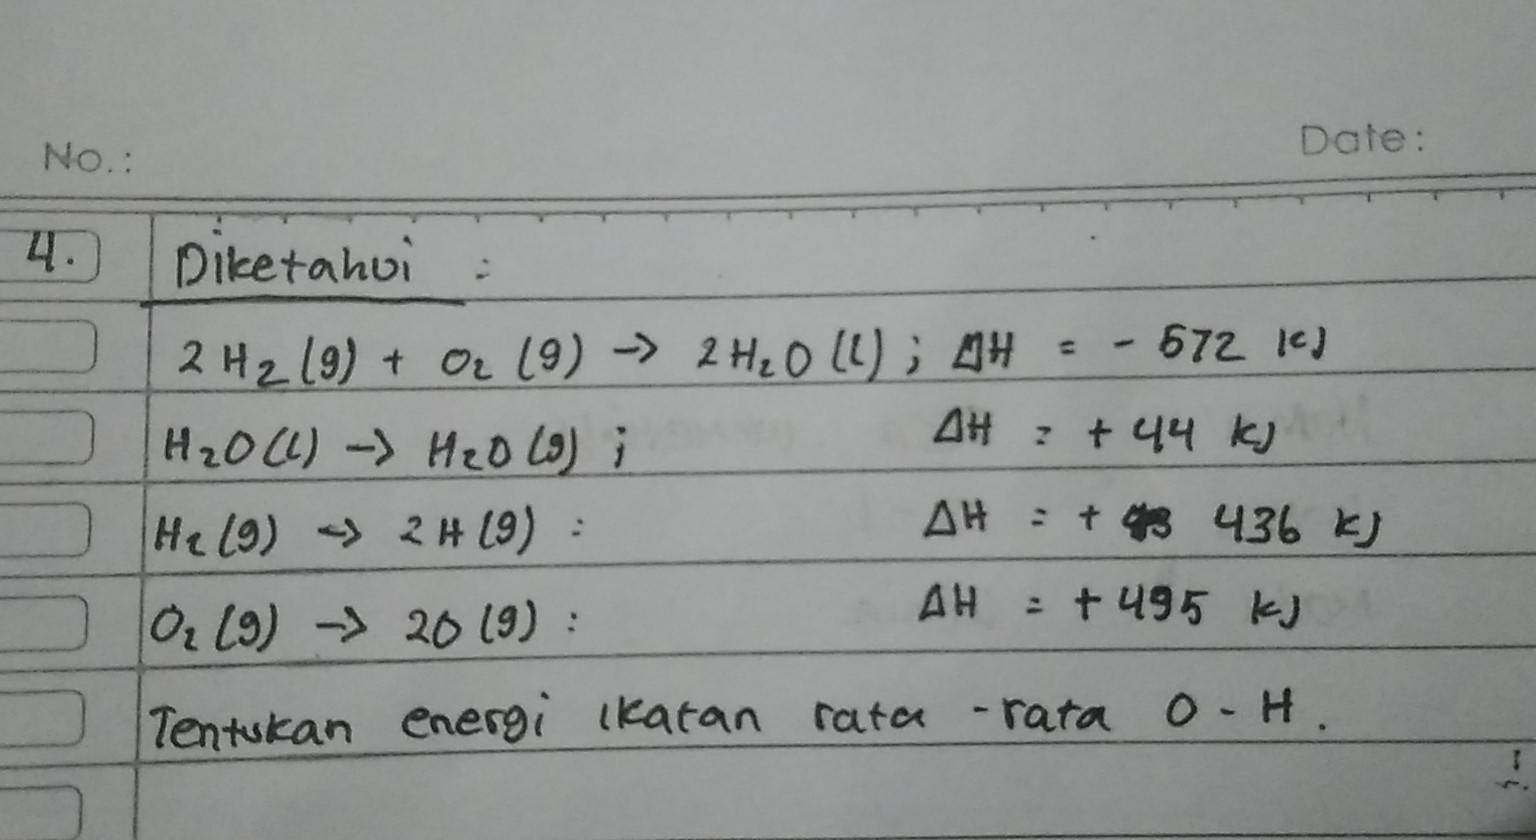 No.:
Date:
4. Diketahui :
2H₂ (g) + O₂ (g) → 2H₂O (l) ; ΔH = - 572 kJ
H₂O (l) → H₂O (g) ; ΔH = + 44 kJ
H₂ (g) → 2H (g) : ΔH = + 436 kJ
O₂ (g) → 2O (g) : ΔH = + 495 kJ
Tentukan energi ikatan rata - rata O - H.